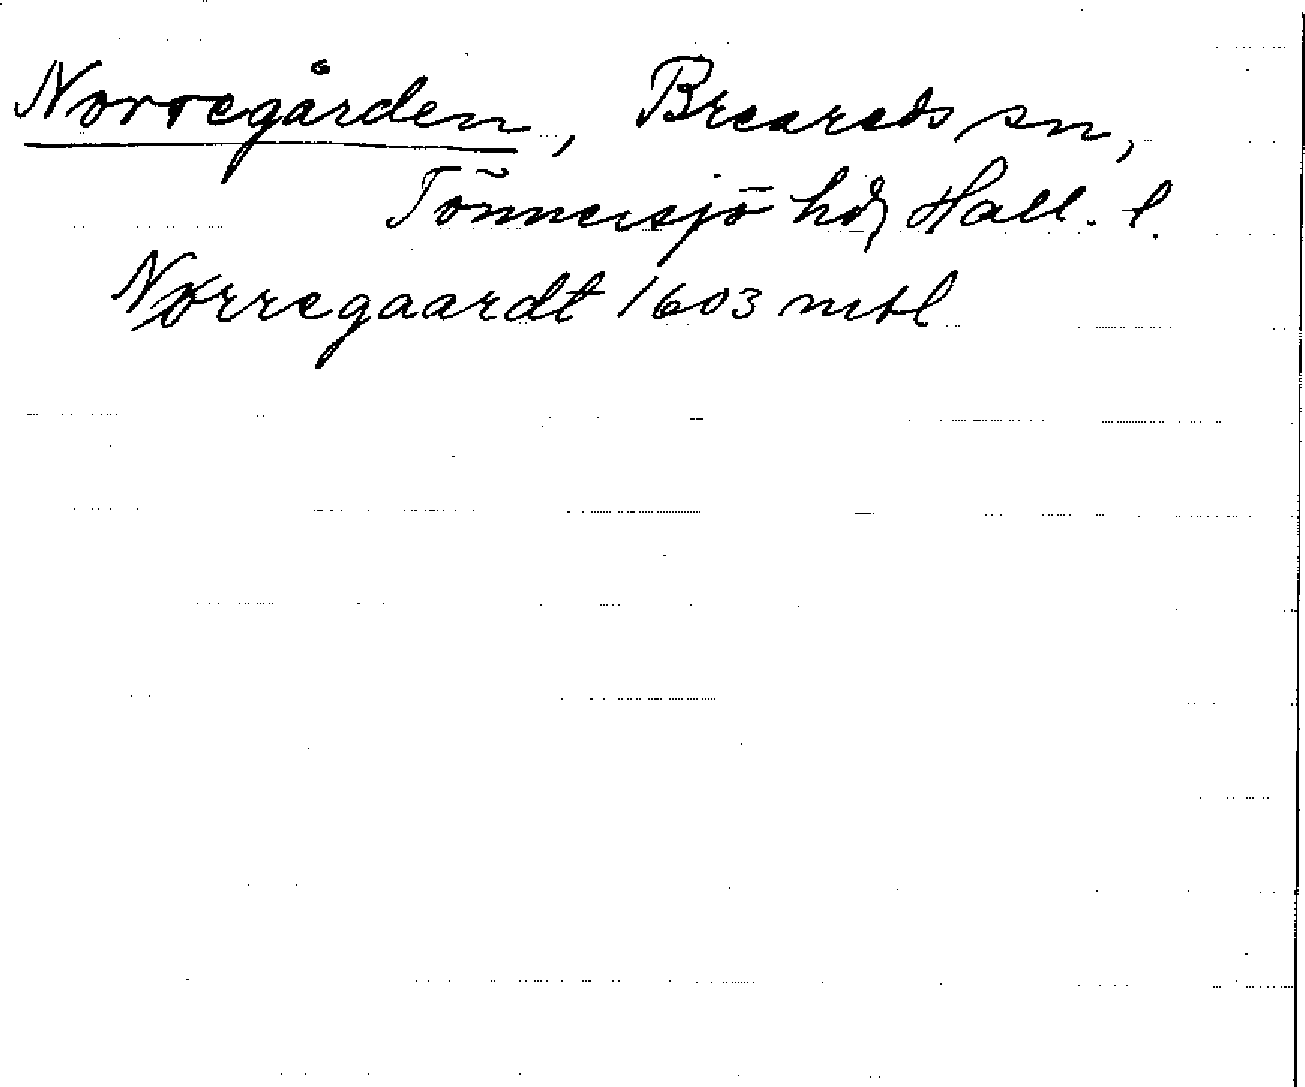 Norregården, Breareds sn,
Tönnersjö hd, Hall. l.
Nørregaardt 1603 mtl